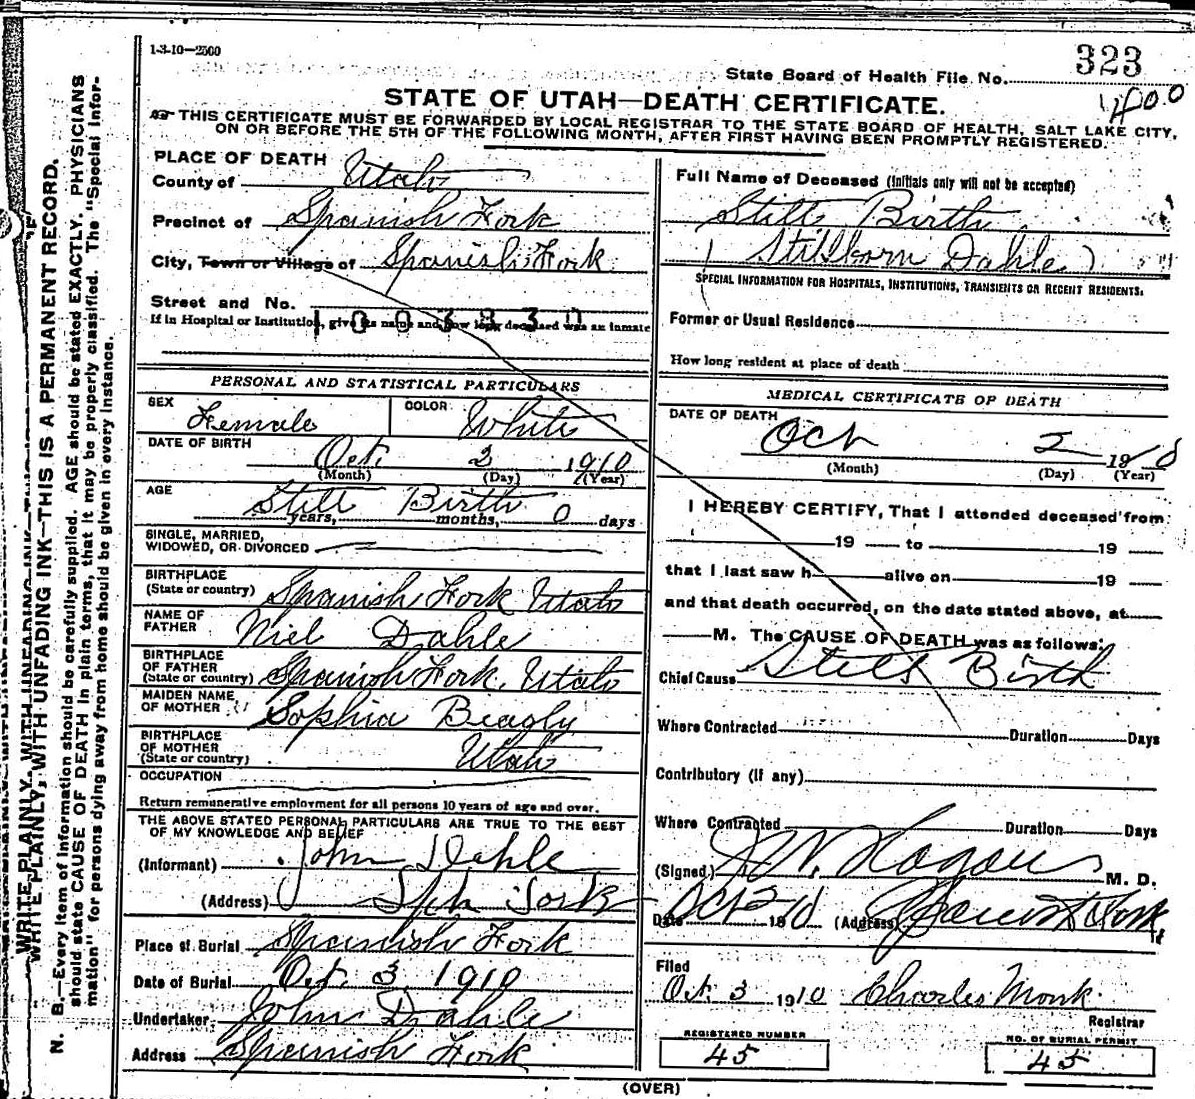 1-3-10—2500
323
State Board of Health File No.
1400
STATE OF UTAH—DEATH CERTIFICATE.
THIS CERTIFICATE MUST BE FORWARDED BY LOCAL REGISTRAR TO THE STATE BOARD OF HEALTH, SALT LAKE CITY,
ON OR BEFORE THE 5TH OF THE FOLLOWING MONTH, AFTER FIRST HAVING BEEN PROMPTLY REGISTERED.
PLACE OF DEATH
County of Utah
Precinct of Spanish Fork
City, Town or Village of Spanish Fork
Street and No.
If in Hospital or Institution, give its name and how long deceased was an inmate
Full Name of Deceased (Initials only will not be accepted)
Still Birth
(Stillborn Dahle)
SPECIAL INFORMATION FOR HOSPITALS, INSTITUTIONS, TRANSIENTS OR RECENT RESIDENTS.
Former or Usual Residence
How long resident at place of death
PERSONAL AND STATISTICAL PARTICULARS
SEX Female COLOR White
DATE OF BIRTH Oct. 2 1910
(Month) (Day) (Year)
AGE Still Birth 0
years, months, days
SINGLE, MARRIED,
WIDOWED, OR DIVORCED
BIRTHPLACE
(State or country) Spanish Fork Utah
NAME OF
FATHER Niel Dahle
BIRTHPLACE
OF FATHER
(State or country) Spanish Fork, Utah
MAIDEN NAME
OF MOTHER Sophia Beagly
BIRTHPLACE
OF MOTHER
(State or country) Utah
OCCUPATION
Return remunerative employment for all persons 10 years of age and over.
THE ABOVE STATED PERSONAL PARTICULARS ARE TRUE TO THE BEST
OF MY KNOWLEDGE AND BELIEF
(Informant) John Dahle
(Address) Spn Fork
Place of Burial Spanish Fork
Date of Burial Oct. 3 1910
Undertaker John Dahle
Address Spanish Fork
MEDICAL CERTIFICATE OF DEATH
DATE OF DEATH
Oct 2 1910
(Month) (Day) (Year)
I HEREBY CERTIFY, That I attended deceased from
19 to 19
that I last saw h alive on 19
and that death occurred, on the date stated above, at
M. The CAUSE OF DEATH was as follows:
Chief Cause Still Birth
Where Contracted Duration Days
Contributory (if any)
Where Contracted Duration Days
(Signed) Hagan M. D.
Date Oct 2 1910 (Address) Spanish Fork,
Filed
Oct. 3 1910 Charles Monk
Registrar
REGISTERED NUMBER
45
NO. OF BURIAL PERMIT
45
(OVER)
WRITE PLAINLY, WITH UNFADING INK—THIS IS A PERMANENT RECORD.
N. B.—Every item of information should be carefully supplied. AGE should be stated EXACTLY. PHYSICIANS
should state CAUSE OF DEATH in plain terms, that it may be properly classified. The "Special Infor-
mation" for persons dying away from home should be given in every instance.